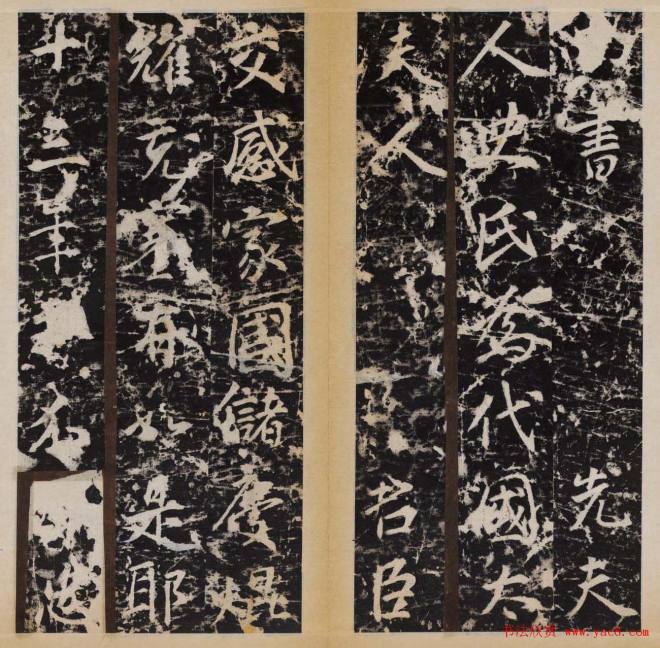 書先夫
人氏為代國太
夫人君臣
交感家國儲慶焜
耀如是耶
十三年
书法欣赏 www.yac8.com